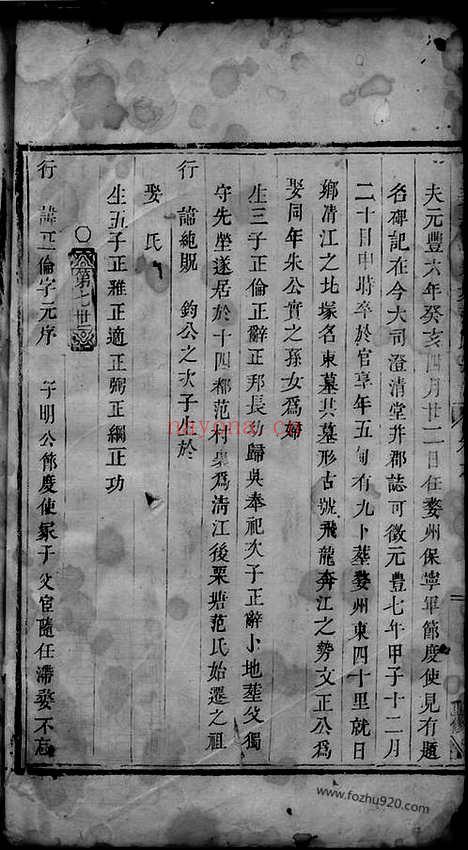 夫元豐六年癸亥四月廿二日任婺州保寧軍節度使見有題
名碑記在今大司澄清堂并郡誌可徵元豐七年甲子十二月
二十日申時卒於官享年五旬有九卜塟婺州東四十里就日
鄉清江之北塚名東墓其墓形古號飛龍奔江之勢文正公為
娶同年朱公實之孫女為婦
生三子正倫正辭正邦長幼歸吳奉祀次子正辭卜地塟父獨
守先塋遂居於十四都范村巢為清江後栗塘范氏始遷之祖
行 諱純貺 鈞公之次子生於
娶 氏
生五子正雅正適正卿正綱正功
第七世
行 諱正倫字元序 子明公節度使家于父宦隨任滯婺不忘
nayona.cn
www.fozhu920.com